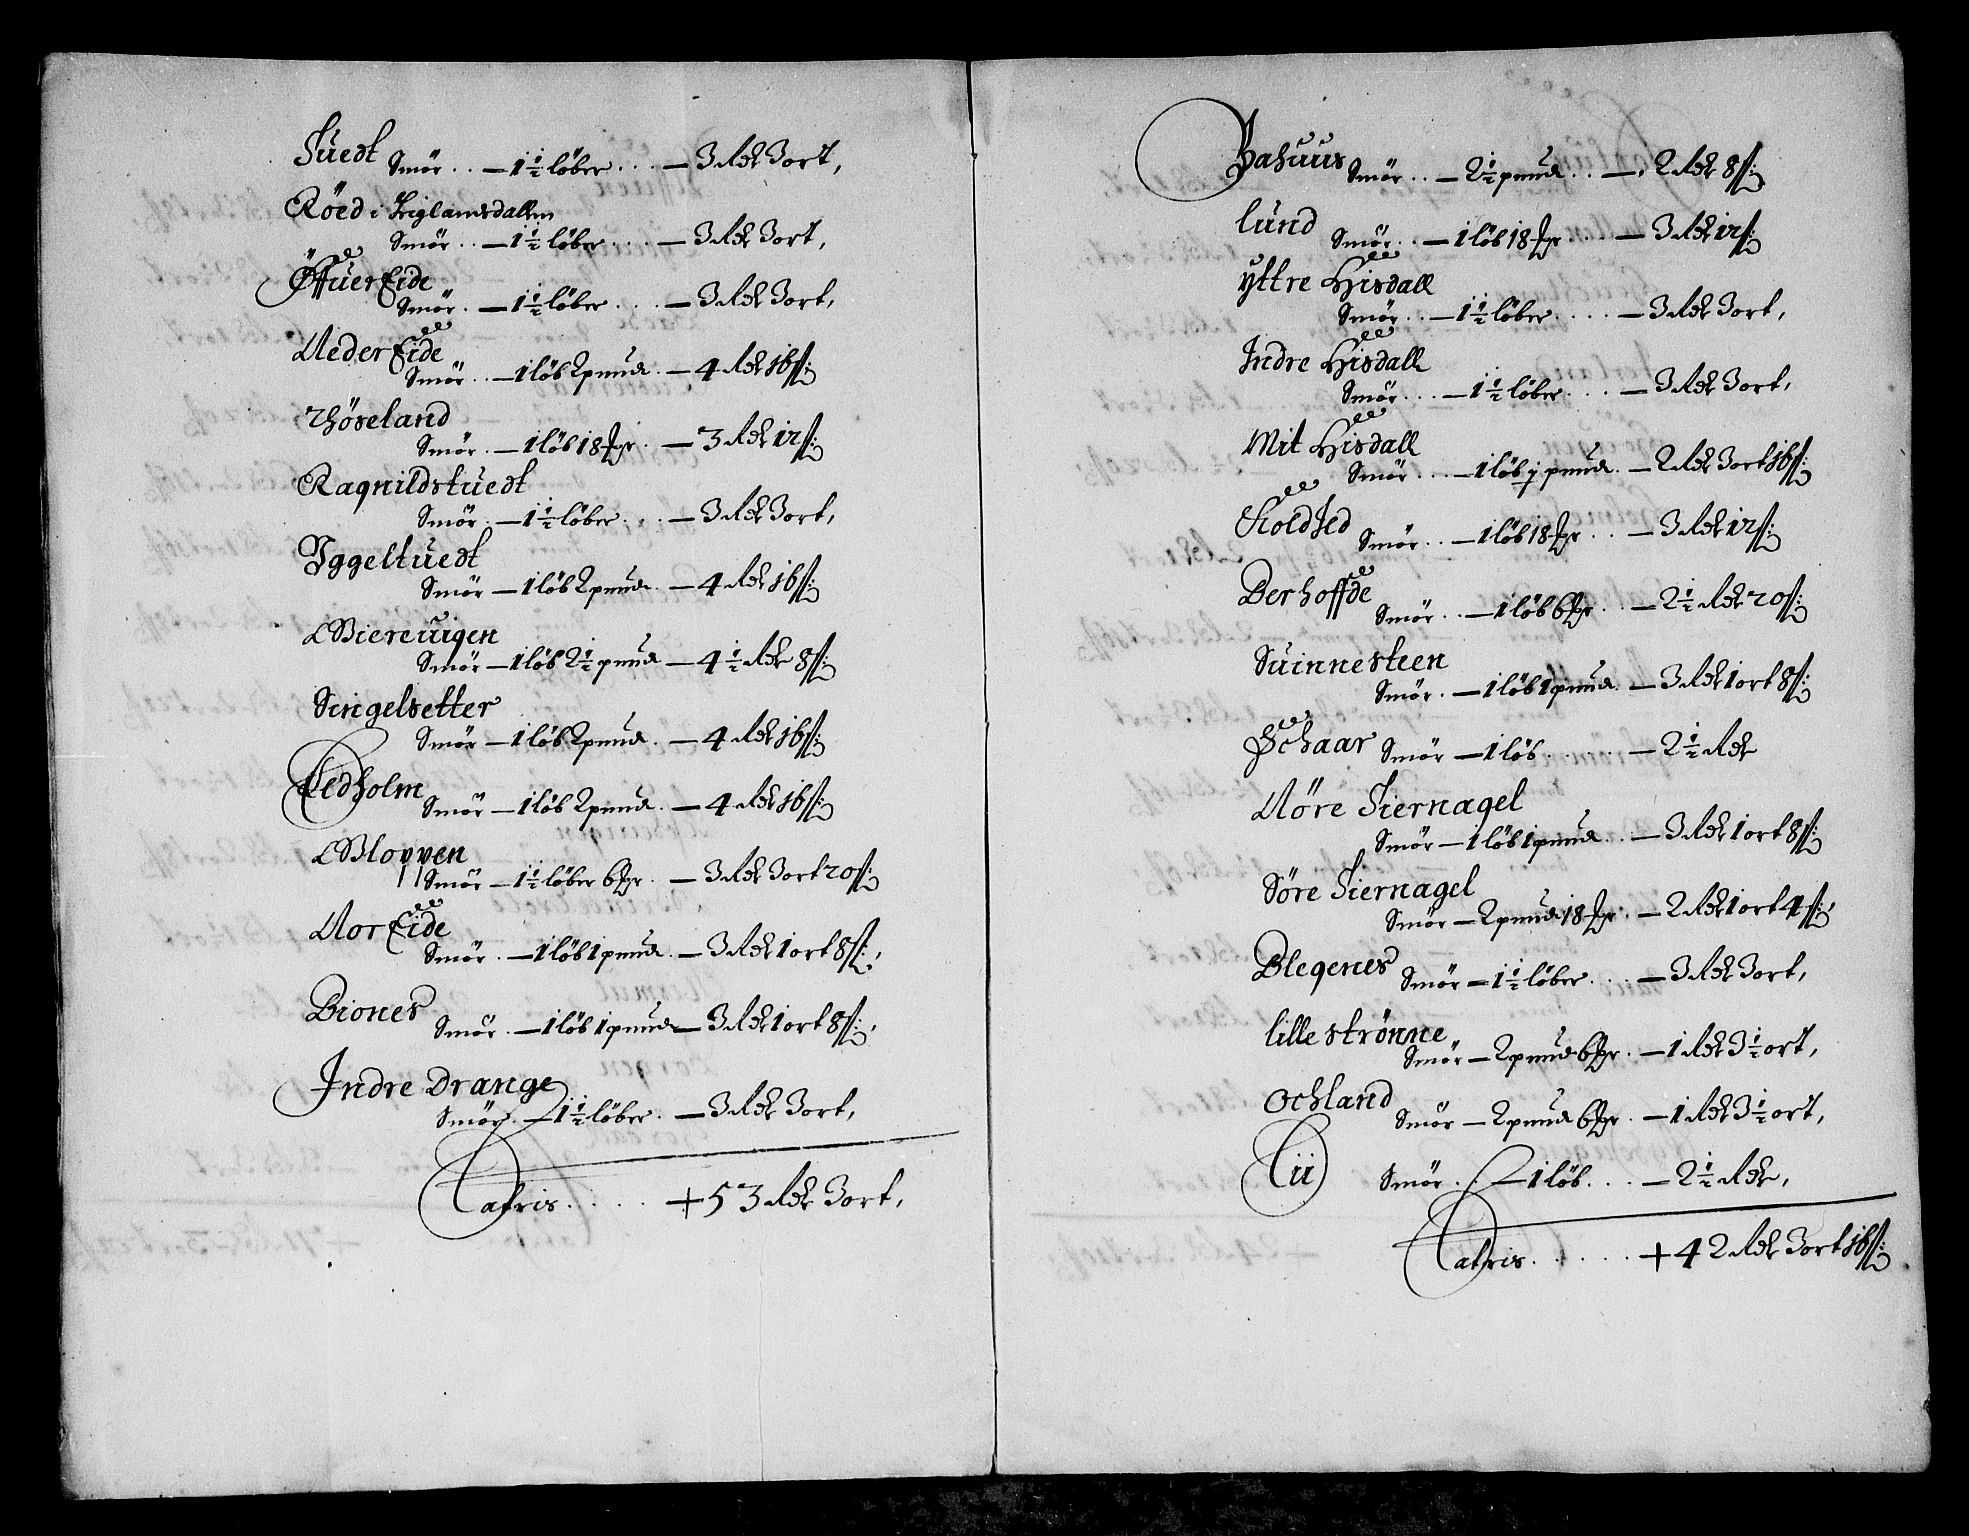 Tuedt Smör . . — 1½ löber . . . — 3 Rdr 3 ort,
Röed i Friglandsdallen
Smör . . — 1½ löber . . . — 3 Rdr 3 ort,
Öffuer Eide
Smör . — 1½ löber . . . — 3 Rdr 3 ort,
Neder Eide
Smör . . — 1 löb 2 pund . — 4 Rdr 16 ß:
Thöseland
Smör . — 1 löb 18 . — 3 Rdr 12 ß:
Ragnildstuedt
Smör . — 1½ löber . . . — 3 Rdr 3 ort,
Yggeltuedt
Smör — 1 löb 2 pund . — 4 Rdr 16 ß:
Biereuigen
Smör — 1 löb 2½ pund — 4½ Rdr 8 ß:
Singelsetter
Smör — 1 löb 2 pund . — 4 Rdr 16 ß:
Ledholm Smör — 1 löb 2 pund . — 4 Rdr 16 ß:
Bloppen
Smör — 1½ löber 6 . — 3 Rdr 3 ort 20 ß:
Nor Eide
Smör . — 1 löb 1 pund . — 3 Rdr 1 ort 8 ß:,
Biones Smör . — 1 löb 1 pund — 3 Rdr 1 ort 8 ß:,
Indre Drange
Smör . — 1½ löber . — 3 Rdr 3 ort,
Latris . . . . . + 53 Rdr 3 ort,
Bahuus Smör . . — 2½ pund . . — 2 Rdr 8 ß:
lund Smör . . — 1 löb 18 . . . — 3 Rdr 12 ß:
yttre Hisdall
Smör . . — 1½ löber . . . . — 3 Rdr 3 ort,
Indre Hisdall
Smör . . . — 1½ löber . . . — 3 Rdr 3 ort,
Mit Hisdall
Smör . . . — 1 löb j pund . — 2 Rdr 3 ort 16 ß:
Smör . . — 1 löb 18 . . — 3 Rdr 12 ß:
Berhoffde
Smör . . — 1 löb 6 . . — 2½ Rdr 20 ß:
Suinnesteen
Smör . — 1 löb 1 pund . — 3 Rdr 1 ort 8 ß:
Schaar Smör — 1 löb . . . . . — 2½ Rdr
Nöre Siernagel
Smör — 1 löb 1 pund . . — 3 Rdr 1 ort 8 ß:
Söre Siernagel
Smör — 2 pund 18 . — 2 Rdr 1 ort 4 ß:,
Blegenes Smör — 1½ löber . . . — 3 Rdr 3 ort,
lille strönne
Smör — 2 pund 6 . — 1 Rdr 3½ ort,
Ochland Smör — 2 pund 6 . — 1 Rdr 3½ ort,
Lii Smör . . — 1 löb . . . — 2½ Rdr,
Latris . . . . . . + 42 Rdr 3 ort 16 ß: